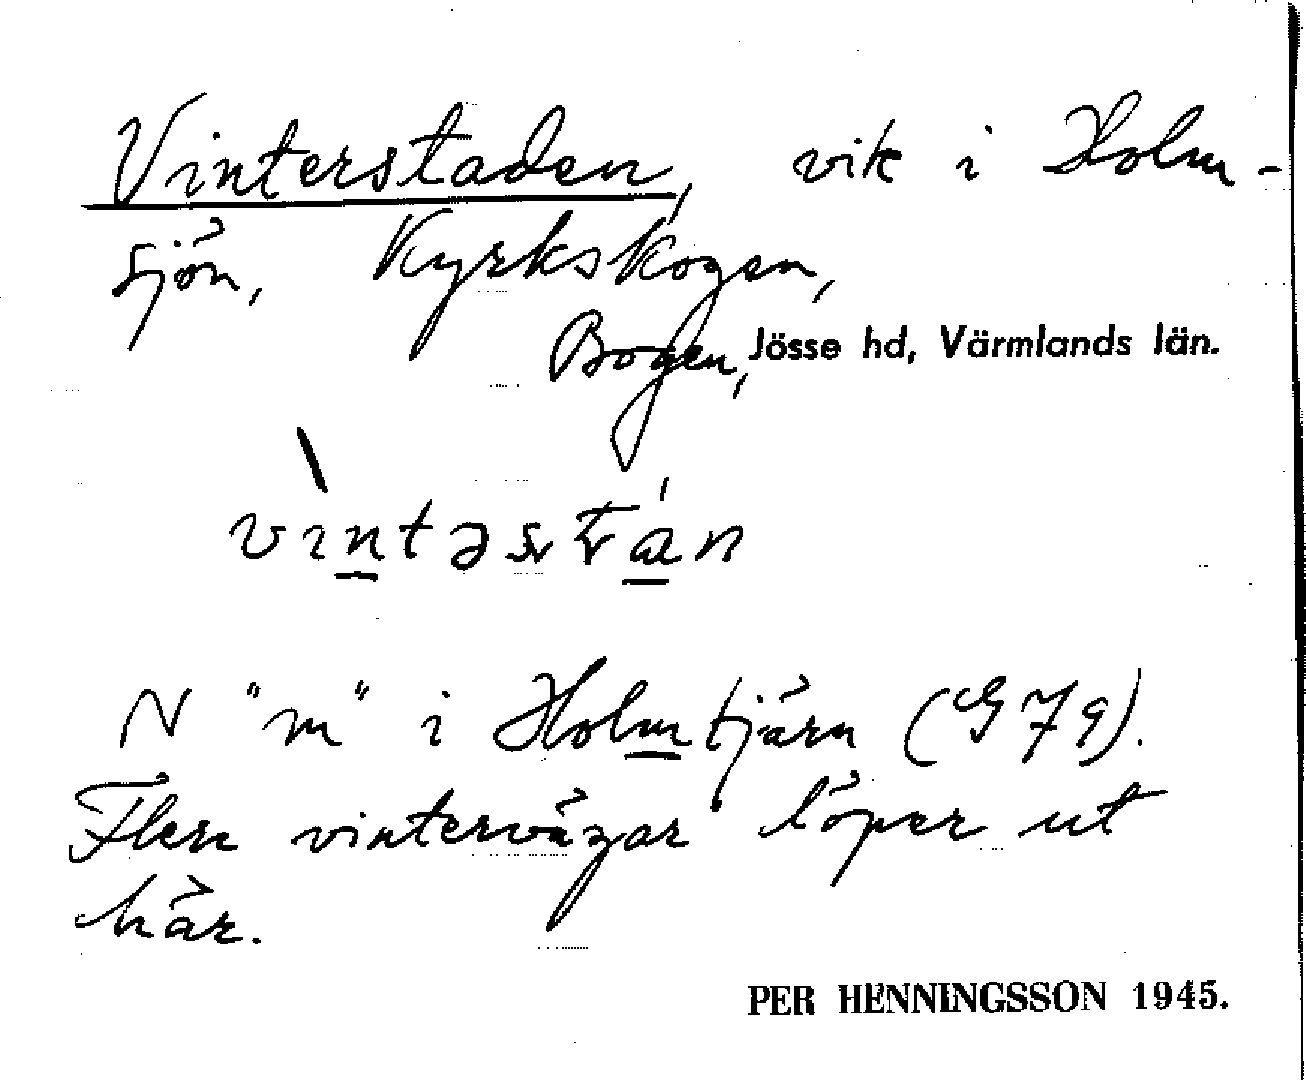 Vinterstaden, vik i Holm-
sjön, Kyrkskogen,
Bogen, Jösse hd, Värmlands län.
vìntəstán
N "m" i Holmtjärn (G79).
Flere vintervägar löper ut
här.
PER HENNINGSSON 1945.